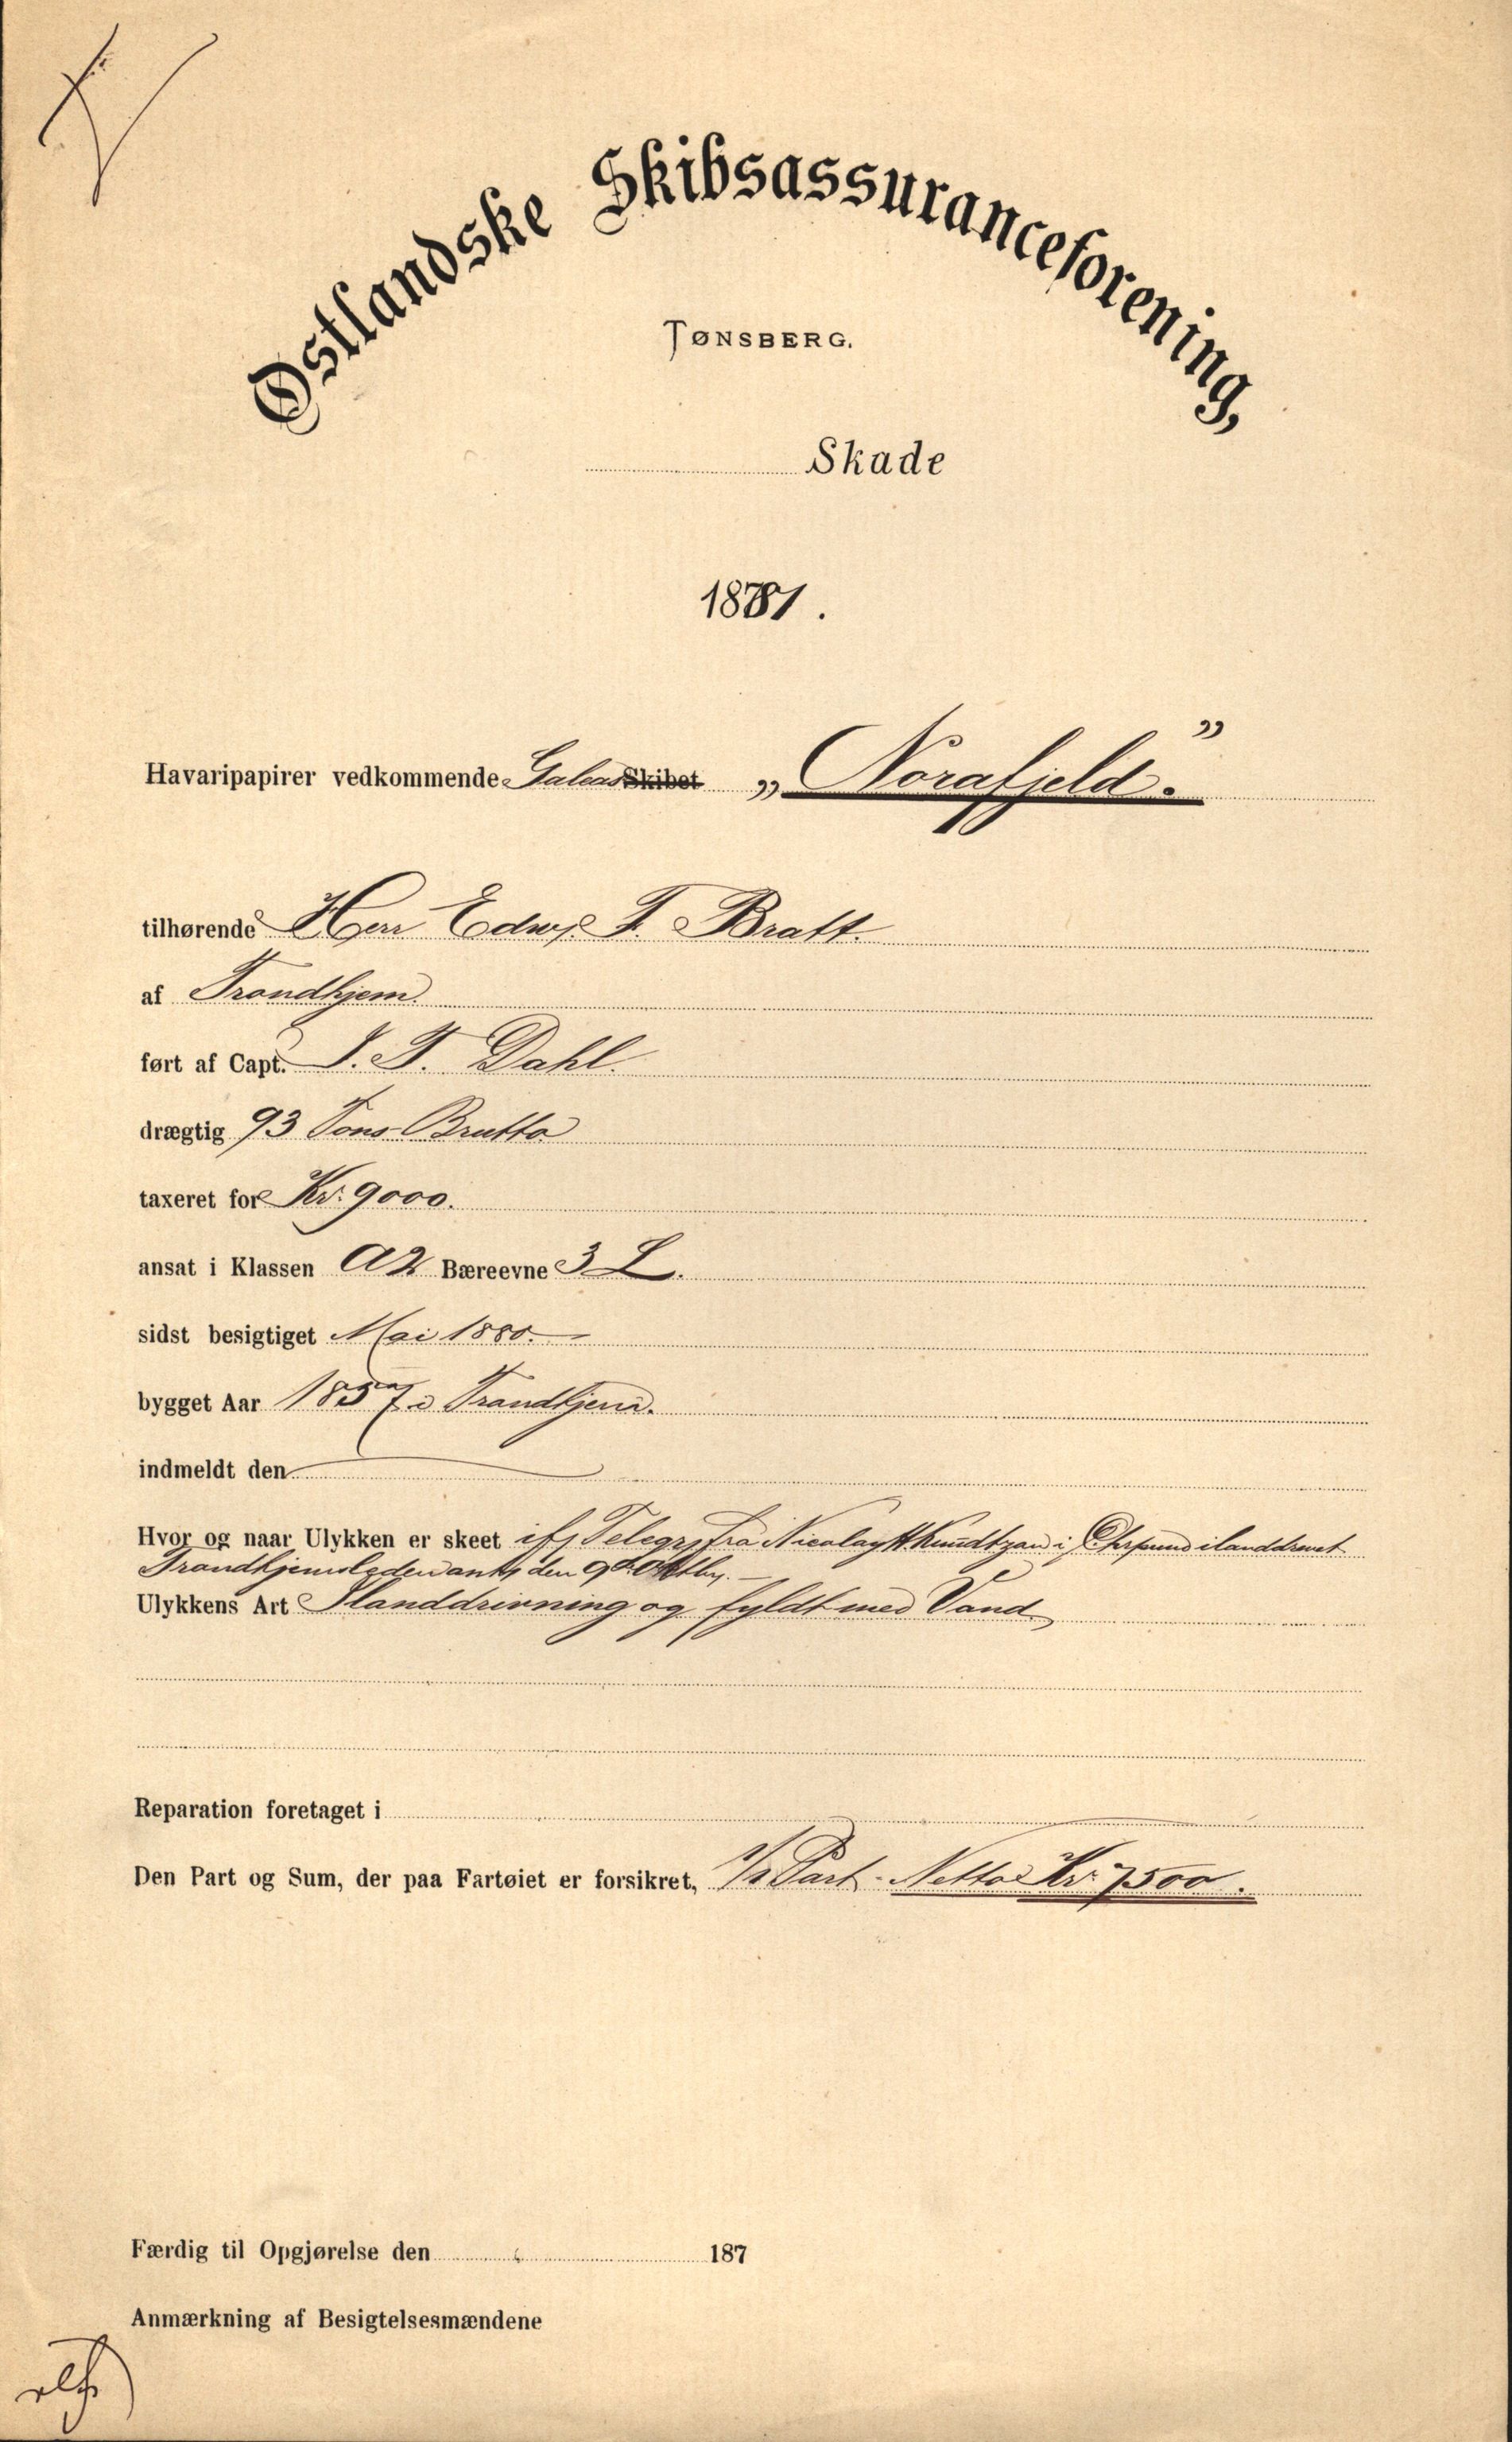 Østlandske Skibsassuranceforening,
TØNSBERG.
Skade
1881.
Havaripapirer vedkommende Galeas Skibet „Norafjeld."
tilhørende Herr Edw. F. Bratt.
af Trondhjem.
ført af Capt. J. F. Dahl.
drægtig 93 Tons Brutto
taxeret for Kr. 9000.
ansat i Klassen A2 Bæreevne 3 L.
sidst besigtiget Mai 1880.
bygget Aar 1857 i Trondhjem.
indmeldt den
Hvor og naar Ulykken er skeet Telegr. fra Nicolay H Knudtzon i Chrsund ilanddrevet
Trondhjemsleden den 9d Oktbr.
Ulykkens Art Ilanddrivning og fyldt med Vand
Reparation foretaget i
Den Part og Sum, der paa Fartøiet er forsikret, Part - Netto Kr. 7500.
Færdig til Opgjørelse den 187
Anmærkning af Besigtelsesmændene